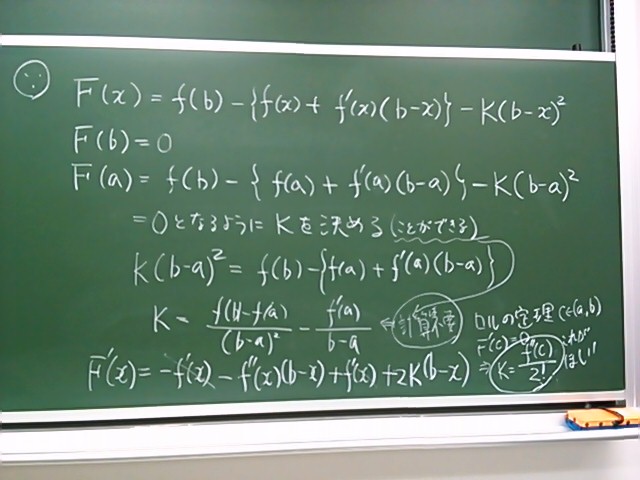 ∵
F(x) = f(b) - {f(x) + f'(x)(b-x)} - K(b-x)²
F(b) = 0
F(a) = f(b) - {f(a) + f'(a)(b-a)} - K(b-a)²
= 0となるようにKを決める(ことができる)
K(b-a)² = f(b) - {f(a) + f'(a)(b-a)}
K = f(b)-f(a) / (b-a)² - f'(a) / b-a ⇐ 計算不要
ロルの定理 c∈(a,b)
F'(c)=0
⇒ K = f''(c) / 2! これがほしい!!
F'(x) = -f'(x) - f''(x)(b-x) + f'(x) + 2K(b-x)